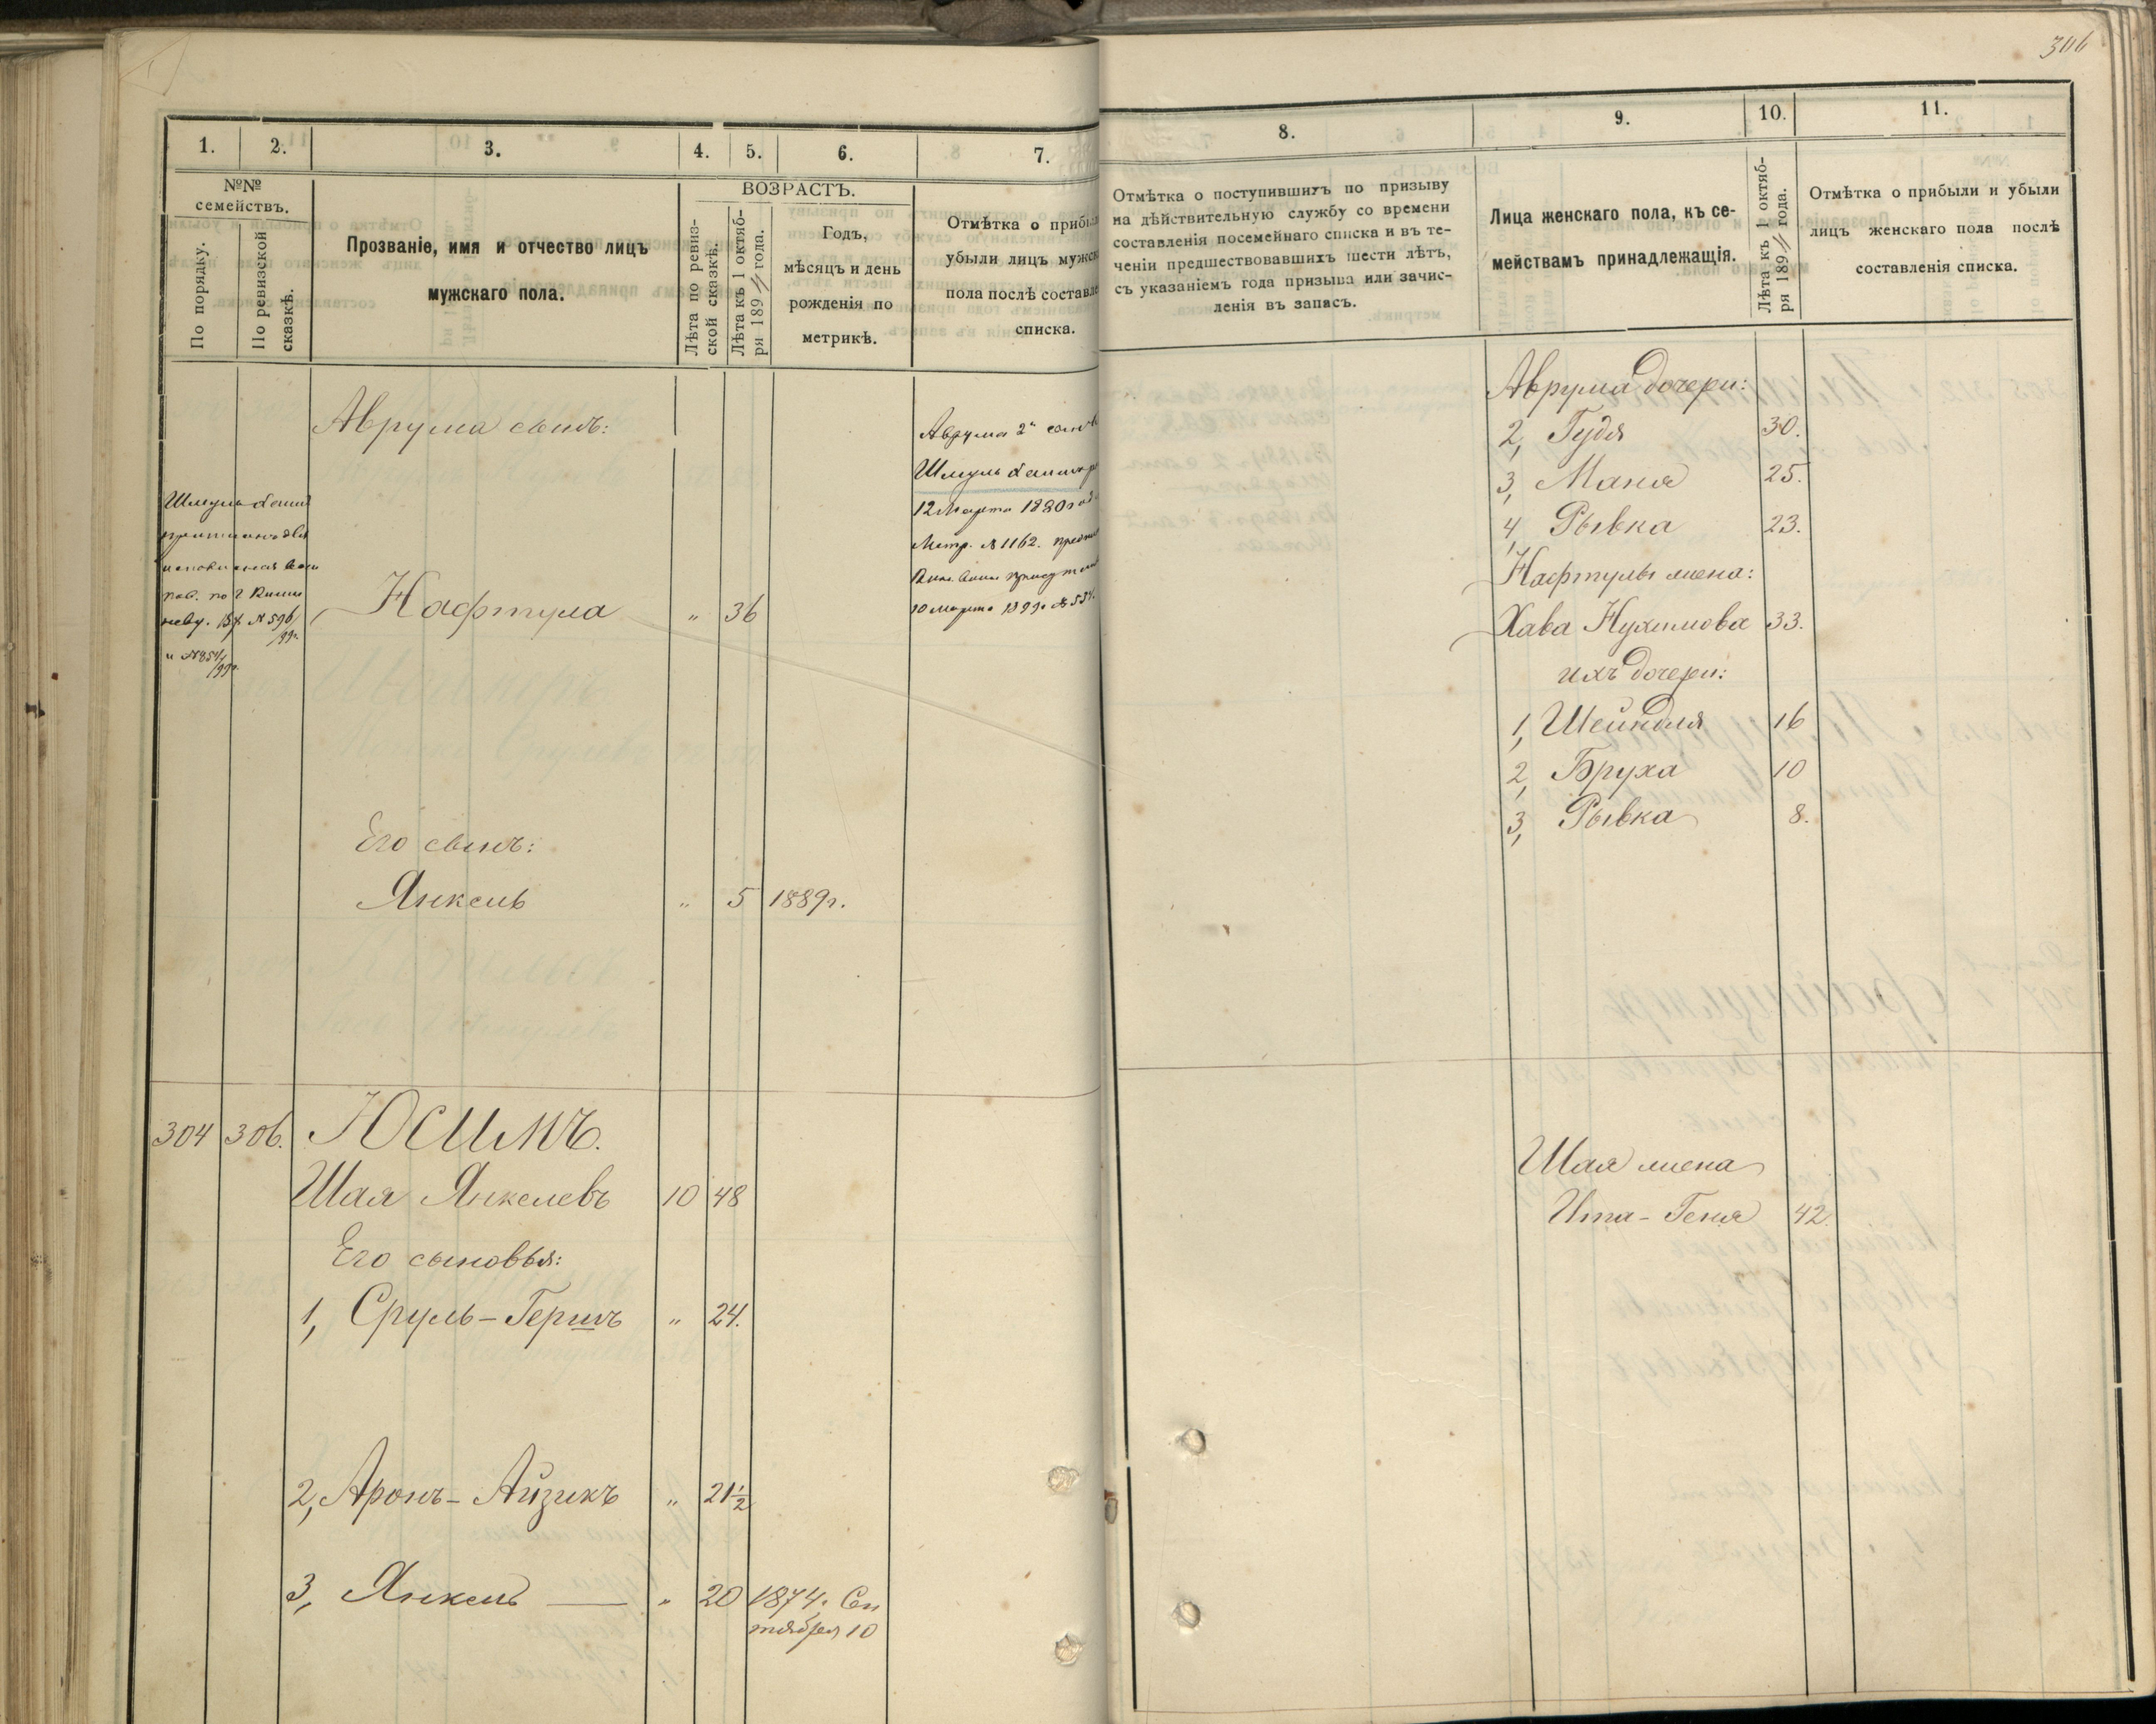 306
1.
2.
3.
4.
5.
6.
7.
8.
9.
10.
11.
№№
семействъ.
По порядку.
По ревизской
сказкѣ.
Прозваніе, имя и отчество лицъ
мужскаго пола.
ВОЗРАСТЪ.
Лѣта по ревиз-
ской сказкѣ.
Лѣта къ 1 октяб-
ря 1894 года.
Годъ,
мѣсяцъ и день
рожденія по
метрикѣ.
Отмѣтка о прибы
убыли лицъ мужск
пола послѣ составле
списка.
Отмѣтка о поступившихъ по призыву
на дѣйствительную службу со времени
составленія посемейнаго списка и въ те-
ченіи предшествовавшихъ шести лѣтъ,
съ указаніемъ года призыва или зачис-
ленія въ запасъ.
Лица женскаго пола, къ се-
мействамъ принадлежащія.
Лѣта къ 1 октяб-
ря 1894 года.
Отмѣтка о прибыли и убыли
лицъ женскаго пола послѣ
составленія списка.
Аврума сынъ:
Шмуль
по г Киши
неву. № 596/99г.
и №851/99г.
Нафтула " 36
Его сынъ:
Янкель " 5 1889г.
Аврума 2й сынъ
Шмуль
12 Марта 1880 год
Метр. №1162.
10 Марта 1899г №534.
Аврума дочери:
2, Гудя 30.
3, Маня 25.
4, Рывка 23.
Нафтулы жена:
Хава Нухимова 33.
ихъ дочери:
1, Шейндля 16
2, Бруха 10
3, Рывка 8.
304 306. ЮСИМЪ.
Шая Янкелевъ 10 48
Его сыновья:
1, Сруль-Гершъ " 24.
2, Аронъ-Айзикъ " 21½
3, Янкель — " 20 1874г. Сен
тября 10
Шая жена
Ита-Геня 42.